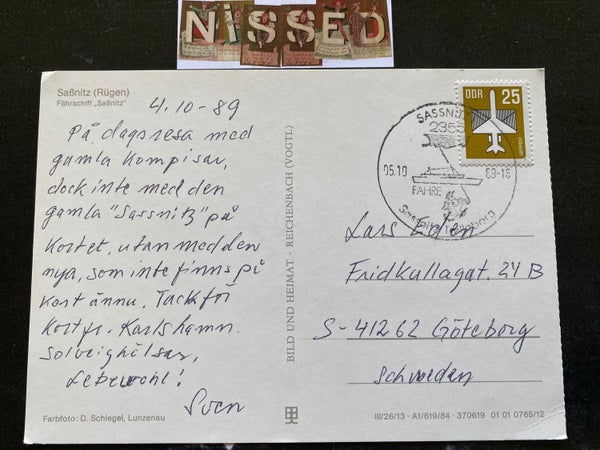 NiSSED
Saßnitz (Rügen)
Fährschiff „Saßnitz"
4.10-89
På dagsresa med
gamla kompisar,
dock inte med den
gamla "Sassnitz" på
kortet, utan med den
nya, som inte finns på
kort ännu. Tack för
kort fr. Karlshamn.
Solveig hälsar,
Lebewohl!
Sven
Farbfoto: D. Schlegel, Lunzenau
BILD UND HEIMAT · REICHENBACH (VOGTL)
DDR 25
SASSNITZ
2355
05.10 89-15
FÄHRE
Sassnitz Trelleborg
Lars Edén
Fridkullagat. 24 B
S-412 62 Göteborg
Schweden
III/26/13 · A1/619/84 · 370619 01 01 0765/12